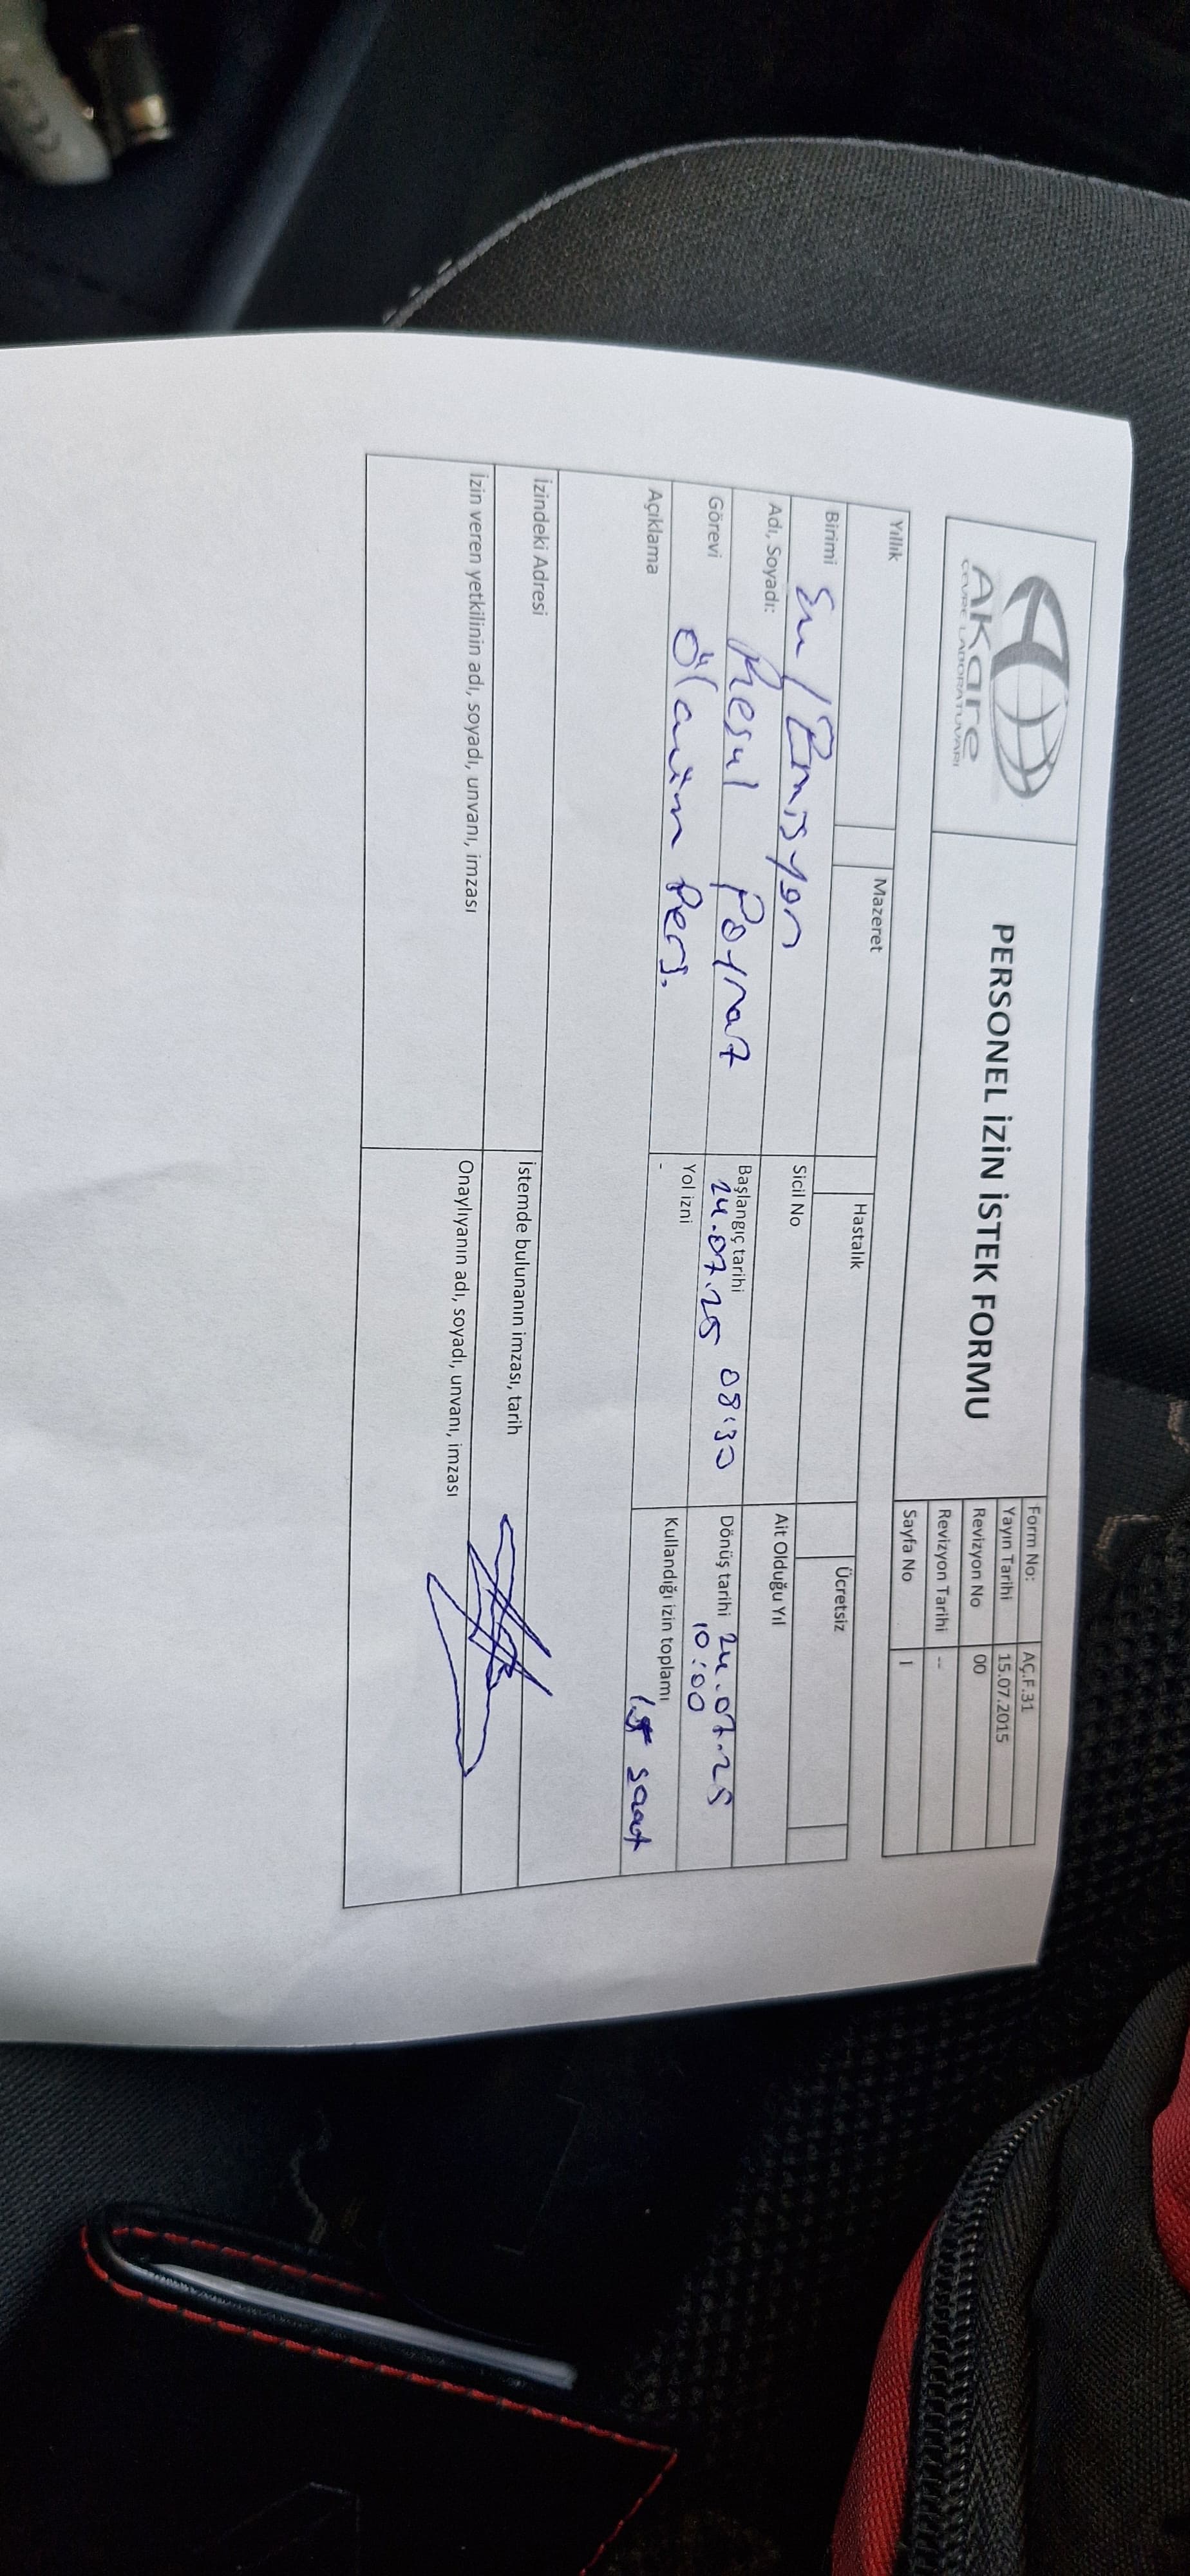 AKare
ÇEVRE LABORATUVARI
PERSONEL İZİN İSTEK FORMU
Form No: AÇ.F.31
Yayın Tarihi 15.07.2015
Revizyon No 00
Revizyon Tarihi --
Sayfa No 1
Yıllık Mazeret Hastalık Ücretsiz
Birimi Su/Emisyon Sicil No Ait Olduğu Yıl
Adı, Soyadı: Resul Poyraz Başlangıç tarihi 24.07.25 08:30 Dönüş tarihi 24.07.25 10:00
Görevi Ölçüm Pers. Yol izni - Kullandığı izin toplamı saat
Açıklama
İzindeki Adresi İstemde bulunanın imzası, tarih
İzin veren yetkilinin adı, soyadı, unvanı, imzası Onaylıyanın adı, soyadı, unvanı, imzası